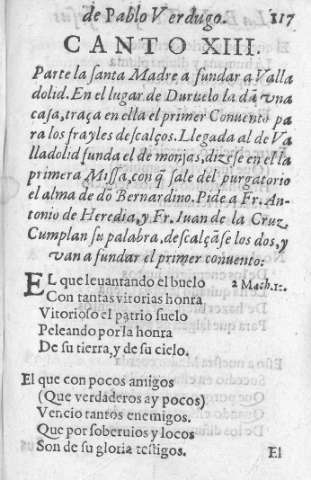 de Pablo Verdugo. 117
CANTO XIII.
Parte la santa Madre a fundar a Valla
dolid. En el lugar de Duruelo la dã vna
casa, traça en ella el primer Conuento pa
ra los frayles descalços. Llegada al de Va
lladolid funda el de monjas, dizese en el la
primera Missa, con q̃ sale del purgatorio
el alma de dõ Bernardino. Pide a Fr. An-
tonio de Heredia, y Fr. Iuan de la Cruz
Cumplan su palabra, descalçãse los dos, y
van a fundar el primer conuento:
EL que leuantando el buelo 2 Mach. 1.
Con tantas vitorias honra
Vitorioso el patrio suelo
Peleando por la honra
De su tierra, y de su cielo.
El que con pocos amigos
(Que verdaderos ay pocos)
Vencio tantos enemigos.
Que por soberuios y locos
Son de su gloria testigos.
El